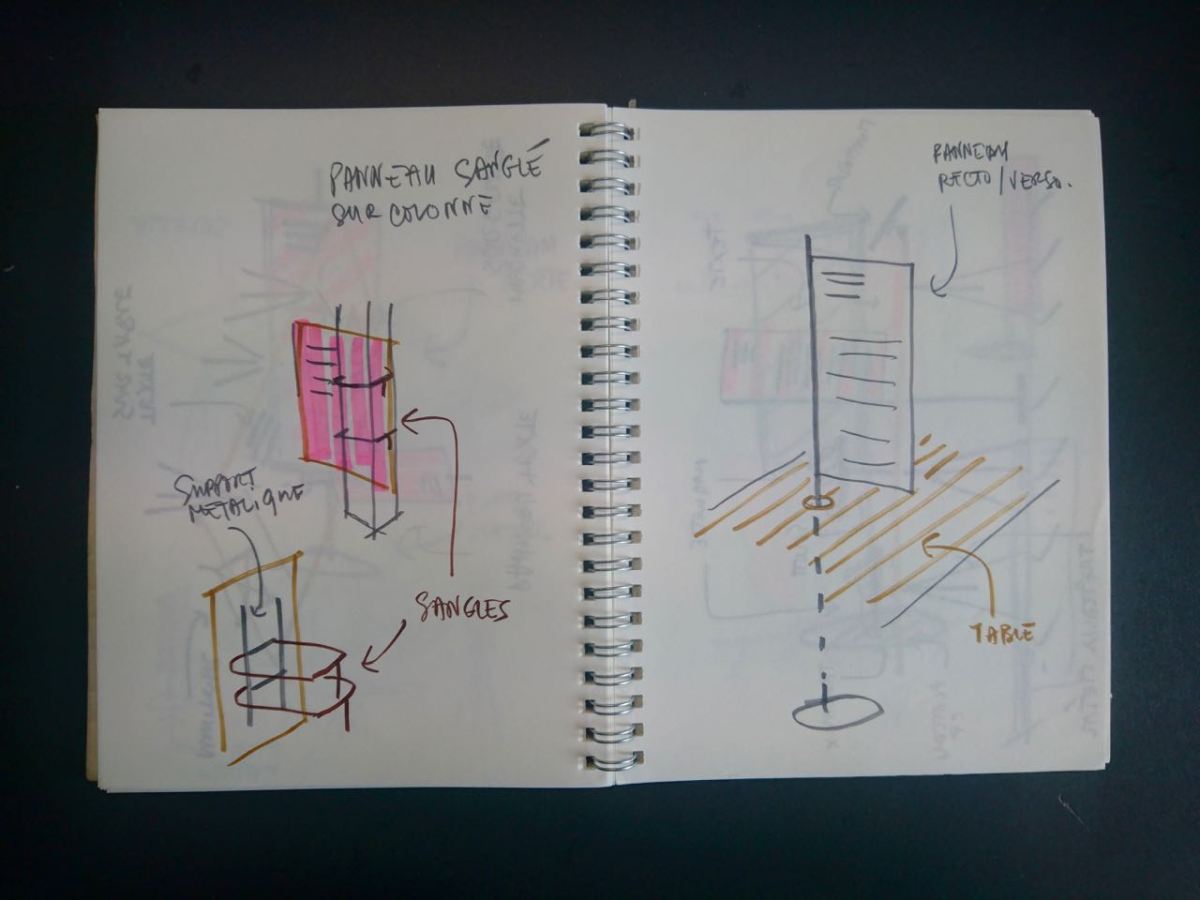 PANNEAU SANGLÉ
SUR COLONNE
SUPPORT
METALIQUE
SANGLES
PANNEAU
RECTO/VERSO.
TABLE